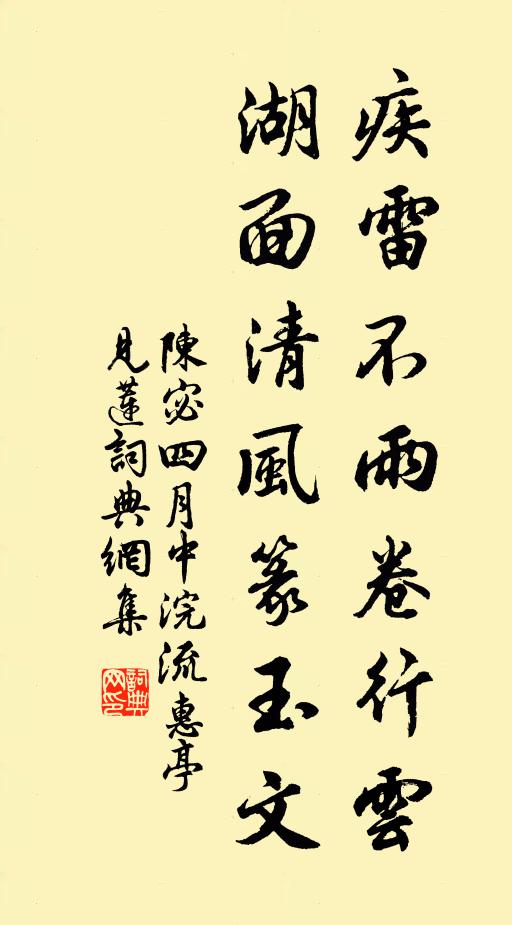 疾雷不雨卷行雲
湖面清風篆玉文
陳宓四月中浣流惠亭
見蓮詞典網集
詞典网印